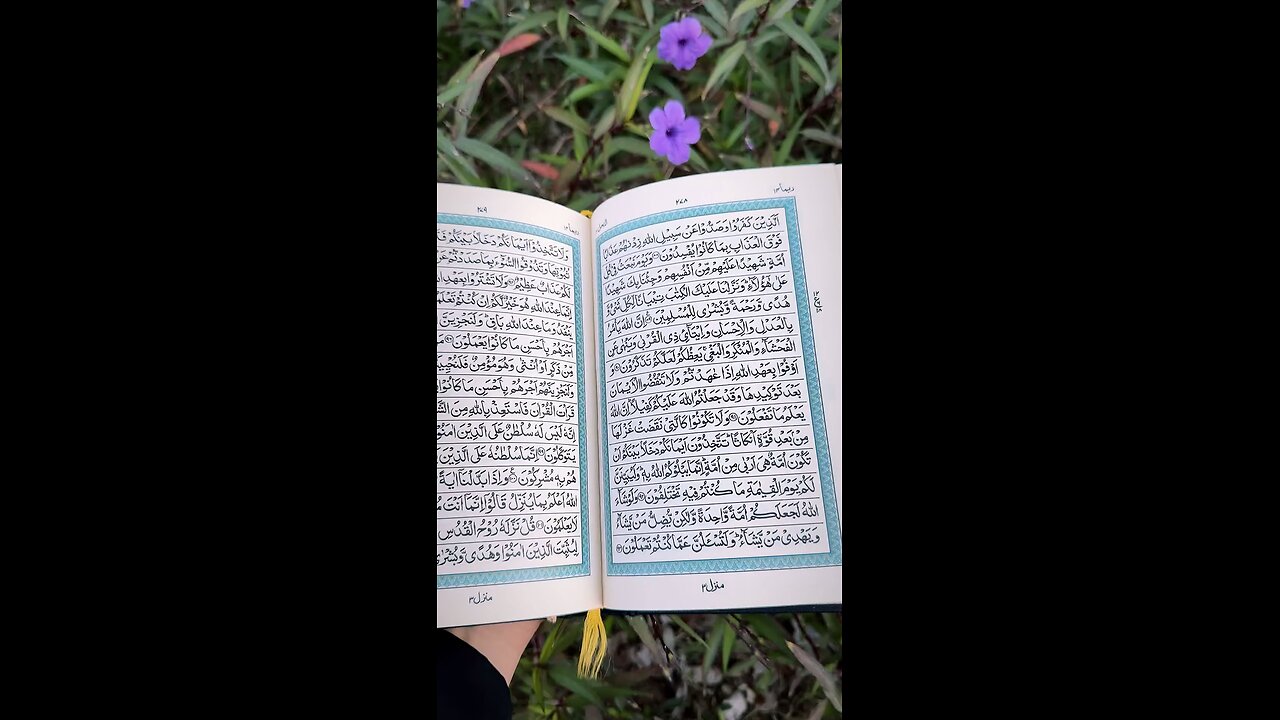 ربما ١٤
٢٧٨
اَلَّذِيْنَ كَفَرُوْا وَصَدُّوْا عَنْ سَبِيْلِ اللهِ زِدْنٰهُمْ عَذَابًا
فَوْقَ الْعَذَابِ بِمَا كَانُوْا يُفْسِدُوْنَ وَيَوْمَ نَبْعَثُ فِيْ كُلِّ
اُمَّةٍ شَهِيْدًا عَلَيْهِمْ مِّنْ اَنْفُسِهِمْ وَجِئْنَا بِكَ شَهِيْدًا
عَلٰى هٰٓؤُلَآءِ وَنَزَّلْنَا عَلَيْكَ الْكِتٰبَ تِبْيَانًا لِّكُلِّ شَيْءٍ وَّ
هُدًى وَّرَحْمَةً وَّبُشْرٰى لِلْمُسْلِمِيْنَ اِنَّ اللهَ يَأْمُرُ
بِالْعَدْلِ وَالْاِحْسَانِ وَاِيْتَآئِ ذِي الْقُرْبٰى وَيَنْهٰى عَنِ
الْفَحْشَآءِ وَالْمُنْكَرِ وَالْبَغْيِ يَعِظُكُمْ لَعَلَّكُمْ تَذَكَّرُوْنَ وَ
اَوْفُوْا بِعَهْدِ اللهِ اِذَا عٰهَدْتُّمْ وَلَا تَنْقُضُوا الْاَيْمَانَ
بَعْدَ تَوْكِيْدِهَا وَقَدْ جَعَلْتُمُ اللهَ عَلَيْكُمْ كَفِيْلًا اِنَّ اللهَ
يَعْلَمُ مَا تَفْعَلُوْنَ وَلَا تَكُوْنُوْا كَالَّتِيْ نَقَضَتْ غَزْلَهَا
مِنْۢ بَعْدِ قُوَّةٍ اَنْكَاثًا تَتَّخِذُوْنَ اَيْمَانَكُمْ دَخَلًۢا بَيْنَكُمْ اَنْ
تَكُوْنَ اُمَّةٌ هِيَ اَرْبٰى مِنْ اُمَّةٍ اِنَّمَا يَبْلُوْكُمُ اللهُ بِهٖ وَلَيُبَيِّنَنَّ
لَكُمْ يَوْمَ الْقِيٰمَةِ مَا كُنْتُمْ فِيْهِ تَخْتَلِفُوْنَ وَلَوْ شَآءَ
اللهُ لَجَعَلَكُمْ اُمَّةً وَّاحِدَةً وَّلٰكِنْ يُّضِلُّ مَنْ يَّشَآءُ
وَيَهْدِيْ مَنْ يَّشَآءُ وَلَتُسْـَٔلُنَّ عَمَّا كُنْتُمْ تَعْمَلُوْنَ
منزل ٣
٢٧٩
وَلَا تَتَّخِذُوْٓا اَيْمَانَكُمْ دَخَلًۢا بَيْنَكُمْ
ثُبُوْتِهَا وَتَذُوْقُوا السُّوْٓءَ بِمَا صَدَدْتُّمْ عَنْ
لَكُمْ عَذَابٌ عَظِيْمٌ وَلَا تَشْتَرُوْا بِعَهْدِ اللهِ
اِنَّمَا عِنْدَ اللهِ هُوَ خَيْرٌ لَّكُمْ اِنْ كُنْتُمْ
يَنْفَدُ وَمَا عِنْدَ اللهِ بَاقٍ وَلَنَجْزِيَنَّ
اَجْرَهُمْ بِاَحْسَنِ مَا كَانُوْا يَعْمَلُوْنَ
مِّنْ ذَكَرٍ اَوْ اُنْثٰى وَهُوَ مُؤْمِنٌ
وَلَنَجْزِيَنَّهُمْ اَجْرَهُمْ بِاَحْسَنِ مَا
قَرَاْتَ الْقُرْاٰنَ فَاسْتَعِذْ بِاللهِ مِنَ
اِنَّهٗ لَيْسَ لَهٗ سُلْطٰنٌ عَلَى الَّذِيْنَ اٰمَنُوْا
يَتَوَكَّلُوْنَ اِنَّمَا سُلْطٰنُهٗ عَلَى الَّذِيْنَ
هُمْ بِهٖ مُشْرِكُوْنَ وَاِذَا بَدَّلْنَآ اٰيَةً
اللهُ اَعْلَمُ بِمَا يُنَزِّلُ قَالُوْٓا اِنَّمَآ اَنْتَ
لَا يَعْلَمُوْنَ قُلْ نَزَّلَهٗ رُوْحُ الْقُدُسِ
لِيُثَبِّتَ الَّذِيْنَ اٰمَنُوْا وَهُدًى وَّبُشْرٰى
منزل ٣